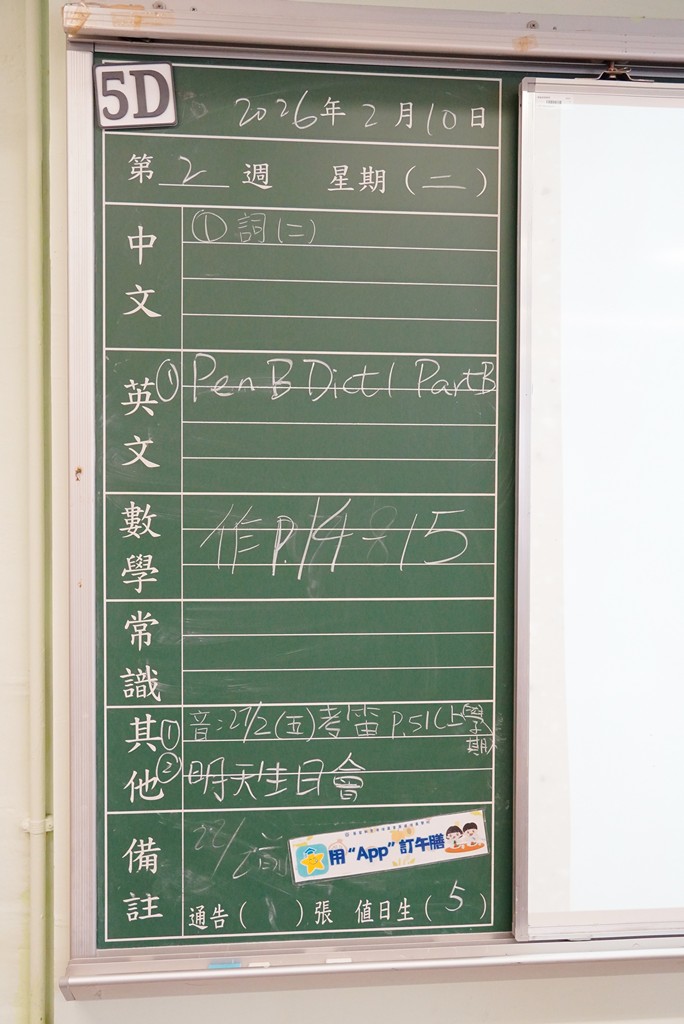 5D
2026年2月10日
第2週 星期(二)
中文
① 詞(二)
英文
① Pen B Dict 1 Part B
數學
作P.14-15
常識
其他
① 音:27/2(五)考笛 P.51(上學期)
② 明天生日會
備註
22/
前
用“App”訂午膳
通告( )張 值日生(5)